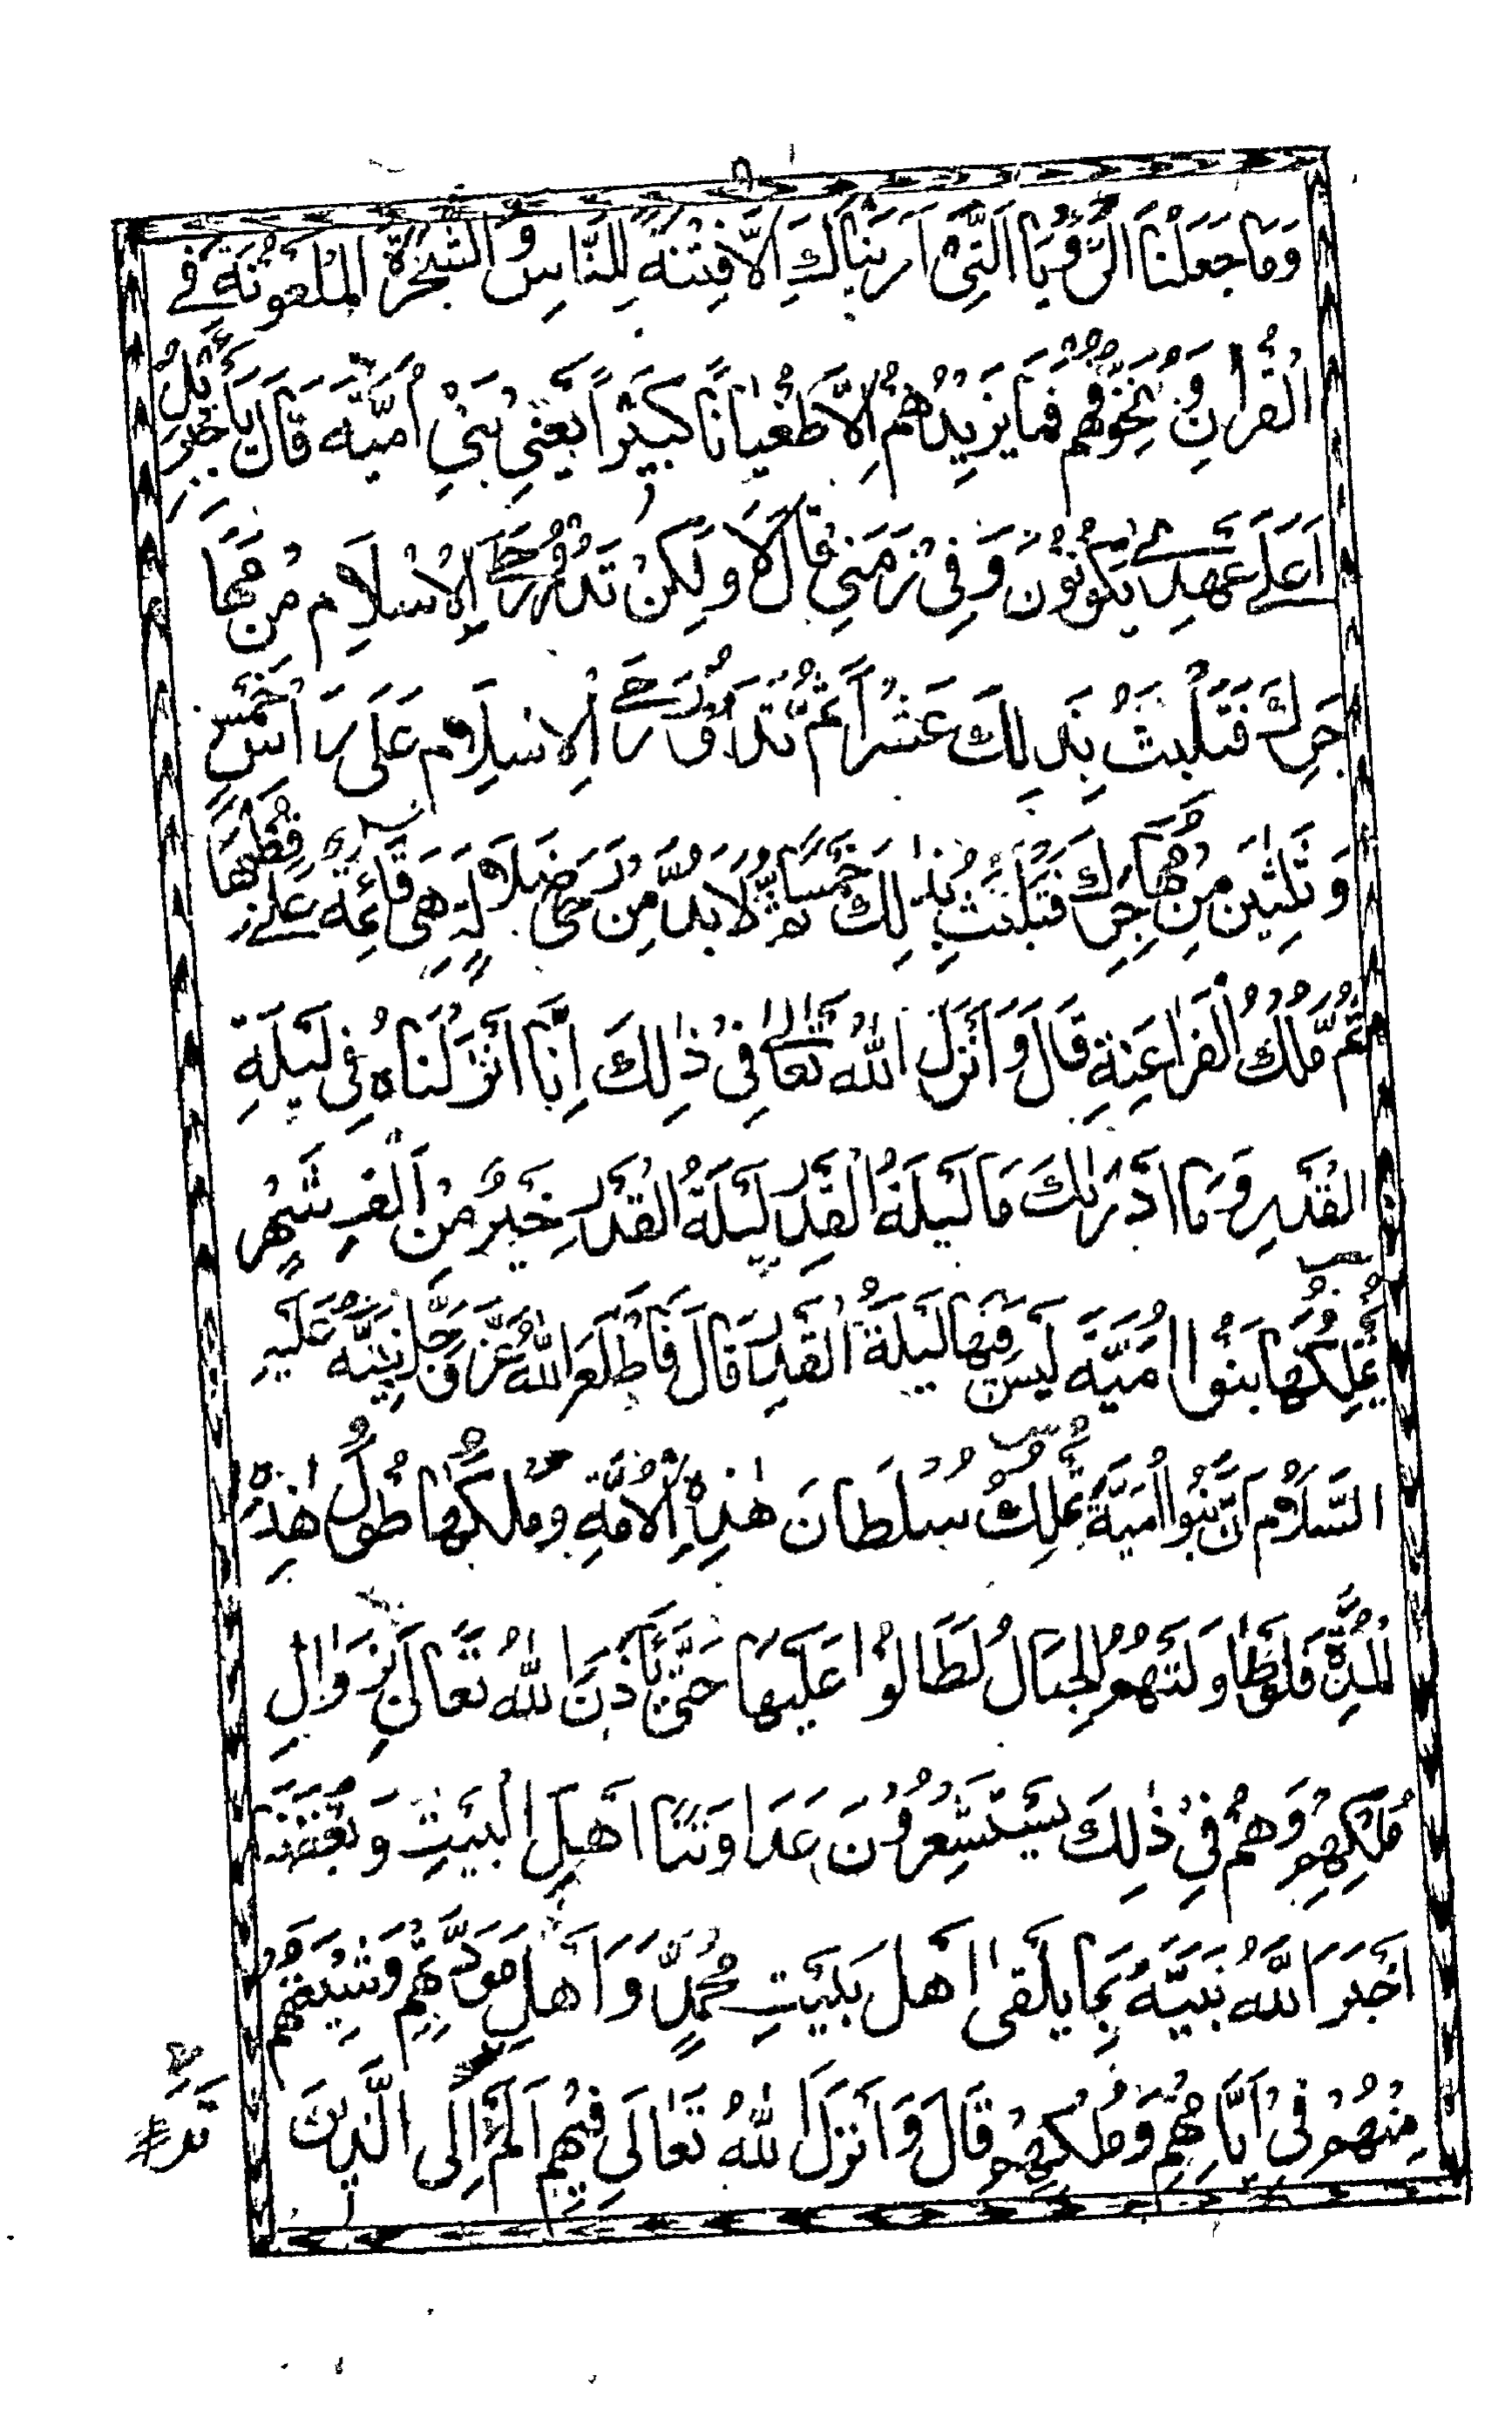 وَمَا جَعَلْنَا الرُّؤْيَا الَّتِيْ اَرَيْنَاكَ اِلَّا فِتْنَةً لِلنَّاسِ وَالشَّجَرَةَ الْمَلْعُوْنَةَ فِي
الْقُرْاٰنِ وَنُخَوِّفُهُمْ فَمَا يَزِيْدُهُمْ اِلَّا طُغْيَانًا كَبِيْرًا يَعْنِيْ بَنِيْ اُمَيَّةَ قَالَ يَا جِبْرَئِيْلُ
اَعَلٰى عَهْدِيْ يَكُوْنُوْنَ وَفِيْ زَمَنِيْ قَالَ لَا وَلٰكِنْ تَدُوْرُ رَحَى الْاِسْلَامِ مِنْ مُهَا
جَرِكَ فَتَلْبَثُ بِذٰلِكَ عَشْرًا ثُمَّ تَدُوْرُ رَحَى الْاِسْلَامِ عَلٰى رَأْسِ خَمْسٍ
وَثَلٰثِيْنَ مِنْ مُهَاجَرِكَ فَتَلْبَثُ بِذٰلِكَ خَمْسًا ثُمَّ لَا بُدَّ مِنْ رَحَى ضَلَالَةٍ هِيَ قَائِمَةٌ عَلٰى قُطْبِهَا
ثُمَّ مُلْكُ الْفَرَاعِنَةِ قَالَ وَاَنْزَلَ اللّٰهُ تَعَالٰى فِيْ ذٰلِكَ اِنَّا اَنْزَلْنَاهُ فِيْ لَيْلَةِ
الْقَدْرِ وَمَا اَدْرٰىكَ مَا لَيْلَةُ الْقَدْرِ لَيْلَةُ الْقَدْرِ خَيْرٌ مِنْ اَلْفِ شَهْرٍ
يَمْلِكُهَا بَنُوْا اُمَيَّةَ لَيْسَ فِيْهَا لَيْلَةُ الْقَدْرِ قَالَ فَاَطْلَعَ اللّٰهُ عَزَّ وَجَلَّ نَبِيَّهُ عَلَيْهِ
السَّلَامُ اَنَّ بَنُوْا اُمَيَّةَ تَمْلِكُ سُلْطَانَ هٰذِهِ الْاُمَّةِ وَمُلْكَهَا طُوْلُ هٰذِهِ
الْمُدَّةِ فَلَوْ طَاوَلَتْهُمُ الْجِبَالُ لَطَالُوْا عَلَيْهَا حَتّٰى يَأْذَنَ اللّٰهُ تَعَالٰى بِزَوَالِ
مُلْكِهِمْ وَهُمْ فِيْ ذٰلِكَ يَسْتَشْعِرُوْنَ عَدَاوَتَنَا اَهْلَ الْبَيْتِ وَبُغْضَنَا
اَخْبَرَ اللّٰهُ نَبِيَّهُ بِمَا يَلْقٰى اَهْلُ بَيْتِ مُحَمَّدٍ وَاَهْلُ مَوَدَّتِهِمْ وَشِيْعَتُهُمْ
مِنْهُمْ فِيْ اَيَّامِهِمْ وَمُلْكِهِمْ قَالَ وَاَنْزَلَ اللّٰهُ تَعَالٰى فِيْهِمْ اَلَمْ تَرَ اِلَى الَّذِيْنَ